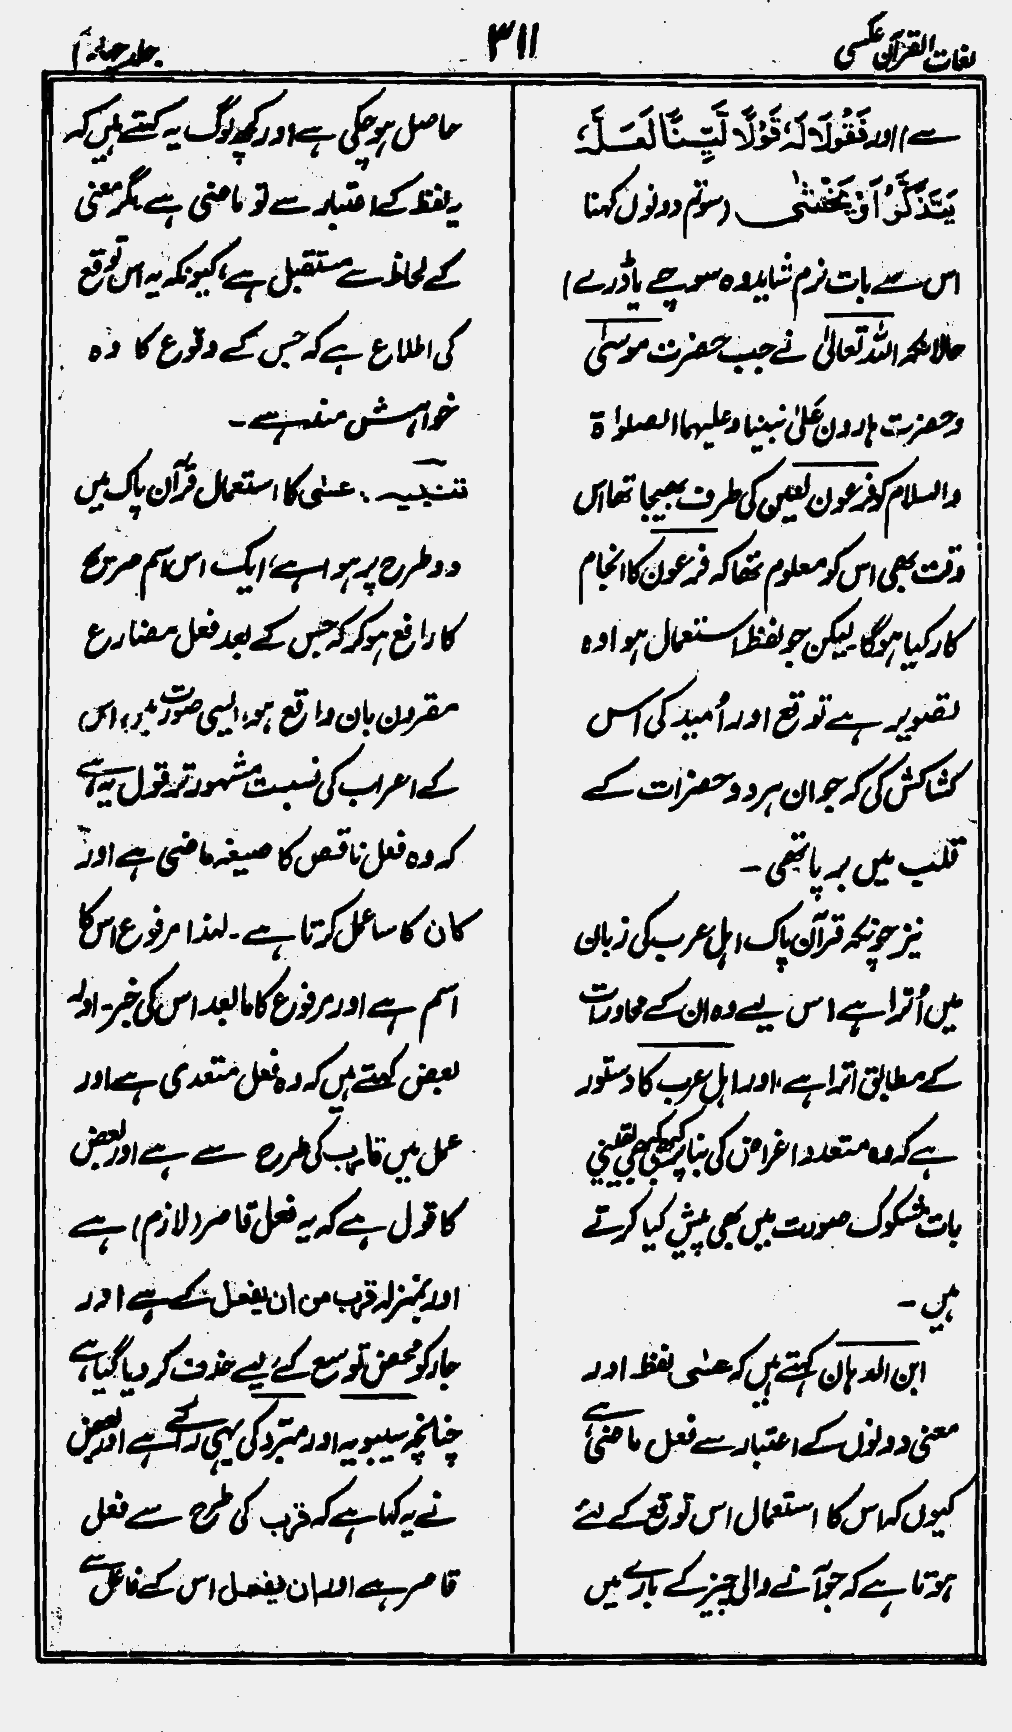 لغات القرآن عکسی
۳۱۱
جلد چہارم
سے) اور فَقُولَا لَہٗ قَوْلًا لَّیِّنًا لَّعَلَّہٗ
یَتَذَکَّرُ اَوْ یَخْشٰی (سو تم دونوں کہنا
اس سے بات نرم شاید وہ سوچے یا ڈرے)
حالانکہ اللہ تعالیٰ نے جب حضرت موسٰی
و حضرت ہارون علیٰ نبینا و علیہما الصلوٰۃ
والسلام کو فرعون لعین کی طرف بھیجا تھا اس
وقت بھی اس کو معلوم تھا کہ فرعون کا انجام
کار کیا ہوگا لیکن جو لفظ استعمال ہوا وہ
تصویر ہے توقع اور اُمید کی اس
کشاکش کی کہ جو ان ہر دو حضرات کے
قلب میں برپا تھی ۔
نیز چونکہ قرآن پاک اہل عرب کی زبان
میں اُترا ہے اس لیے وہ ان کے محاورات
کے مطابق اترا ہے، اور اہل عرب کا دستور
ہے کہ وہ متعدد اغراض کی بنا پر کبھی کبھی یقینی
بات مشکوک صورت میں بھی پیش کیا کرتے
ہیں ۔
ابن الدہان کہتے ہیں کہ عسٰی لفظ اور
معنی دونوں کے اعتبار سے فعل ماضی ہے
کیوں کہ اس کا استعمال اس توقع کے لئے
ہوتا ہے کہ جو آنے والی چیز کے بارے میں
حاصل ہو چکی ہے اور کچھ لوگ یہ کہتے ہیں کہ
یہ لفظ کے اعتبار سے تو ماضی ہے مگر معنی
کے لحاظ سے مستقبل ہے، کیونکہ یہ اس توقع
کی اطلاع ہے کہ جس کے وقوع کا وہ
خواہش مند ہے ۔
تنبیہ ۔ عسٰی کا استعمال قرآن پاک میں
دو طرح پر ہوا ہے، ایک اس اسم صریح
کا رافع ہو کر کہ جس کے بعد فعل مضارع
مقرون بان واقع ہو، ایسی صورت میں اس
کے اعراب کی نسبت مشہور تر قول یہ ہے
کہ وہ فعل ناقص کا صیغہ ماضی ہے اور
کان کا سا عمل کرتا ہے ۔ لہذا مرفوع اس کا
اسم ہے اور مرفوع کا مابعد اس کی خبر ۔ اور
بعض کہتے ہیں کہ وہ فعل متعدی ہے اور
عمل میں قارب کی طرح سے ہے اور بعض
کا قول ہے کہ یہ فعل قاصر (لازم) ہے
اور بمنزلہ قرب من ان یفعل کے ہے اور
جار کو محض توسع کے لیے حذف کر دیا گیا ہے
چنانچہ سیبویہ اور مبرّد کی یہی رائے ہے اور بعض
نے یہ کہا ہے کہ قرب کی طرح سے فعل
قاصر ہے اور ان یفعل اس کے فاعل سے